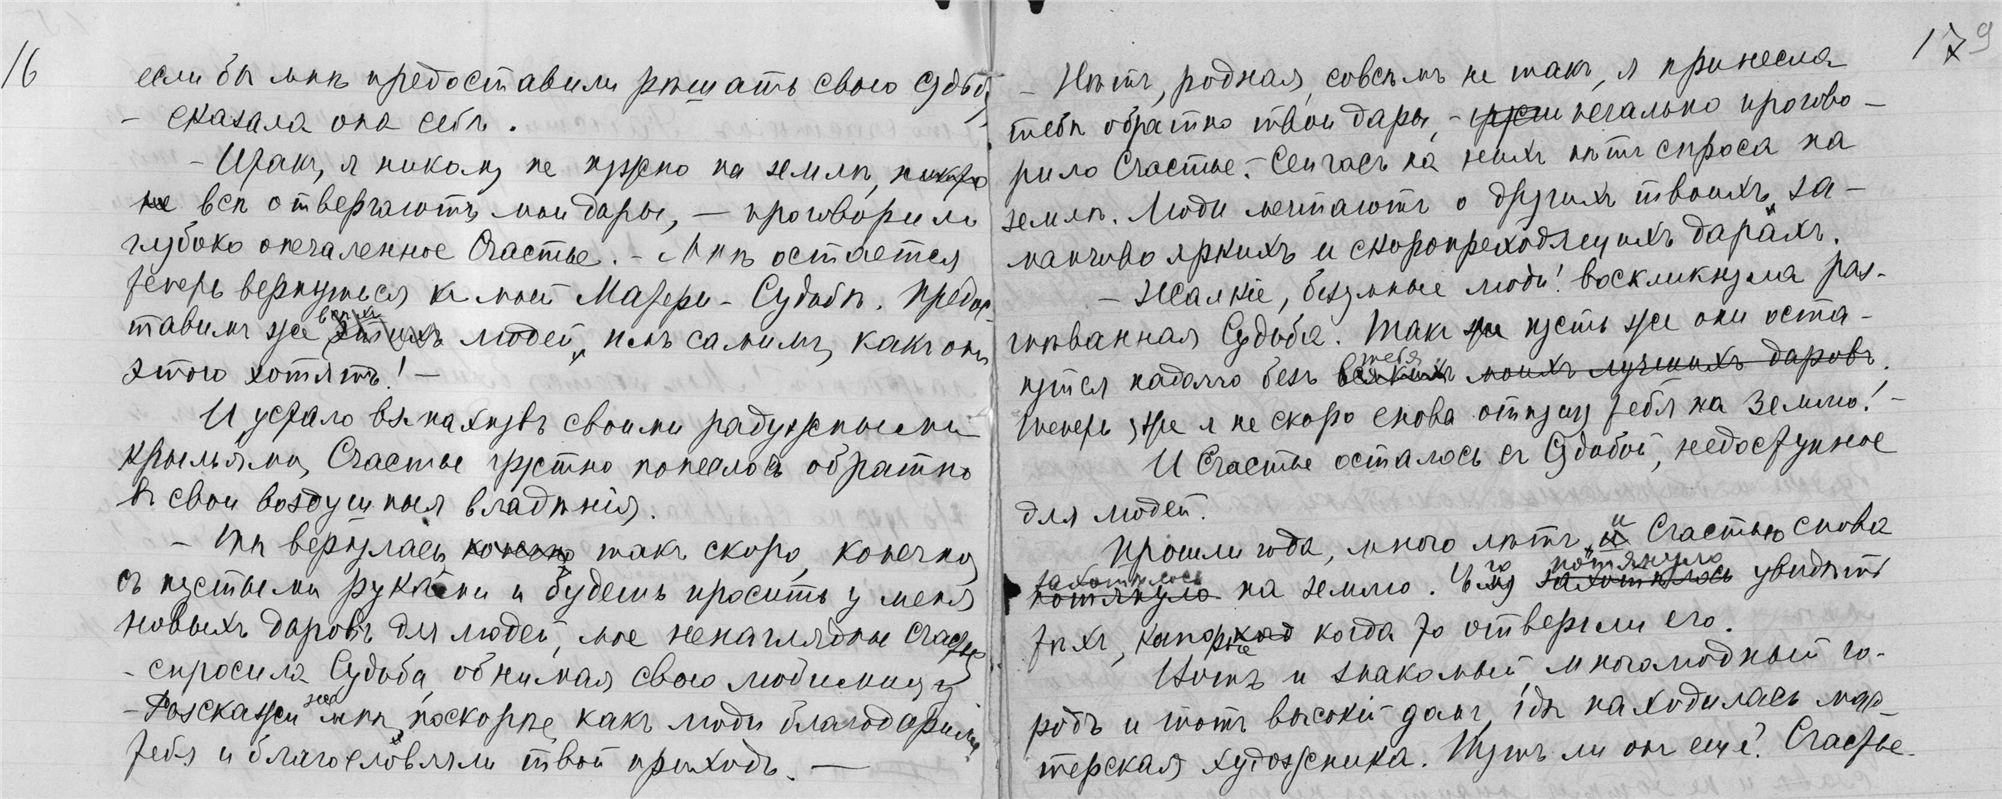 16
если бы мнѣ предоставили рѣшать свою судьбу,
– сказала она себѣ.
– Итакъ, я никому не нужно на землѣ, никто
не всѣ отвергаютъ мои дары, — проговорило
глубоко опечаленное Счастье. – Мнѣ остается
теперь вернуться къ моей Матери – Судьбѣ. Предос-
тавимъ же всѣхъ этихъ людей, имъ самимъ, какъ они
этого хотятъ! —
И устало взмахнувъ своими радужными
крыльями, Счастье грустно понеслось обратно
въ свои воздушныя владѣнія.
– Ты вернулась конечно такъ скоро, конечно,
съ пустыми руками и будешь просить у меня
новыхъ даровъ для людей, мое ненаглядное Счастье
– спросила Судьба, обнимая свою любимицу
– Разскажи же мнѣ, поскорѣе, какъ люди благодарили
тебя и благословляли твой приходъ. —
179
– Нѣтъ, родная, совсѣмъ не такъ, я принесла
тебѣ обратно твои дары, – печально прогово–
рило Счастье. – Сейчасъ на нихъ нѣтъ спроса на
землѣ. Люди мечтаютъ о другихъ твоихъ, за–
манчиво яркихъ и скоропреходящихъ дарахъ.
– Жалкіе, безумные люди! воскликнула раз-
гнѣванная Судьба. Такъ же пусть же они оста–
нутся надолго безъ тебя всякихъ моихъ лучшихъ даровъ.
Теперь уже я не скоро снова отпущу тебя на Землю! –
И Счастье осталось съ Судьбой, недоступное
для людей.
Прошли года, много лѣтъ, и Счастью снова
захотѣлось потянуло на землю. Его потянуло захотѣлось увидѣть
тѣхъ, которые когда то отвергли его.
Вотъ и знакомый многолюдный го-
родъ и тотъ высокій домъ, гдѣ находилась мас-
терская художника. Тутъ ли онъ еще? Счастье-